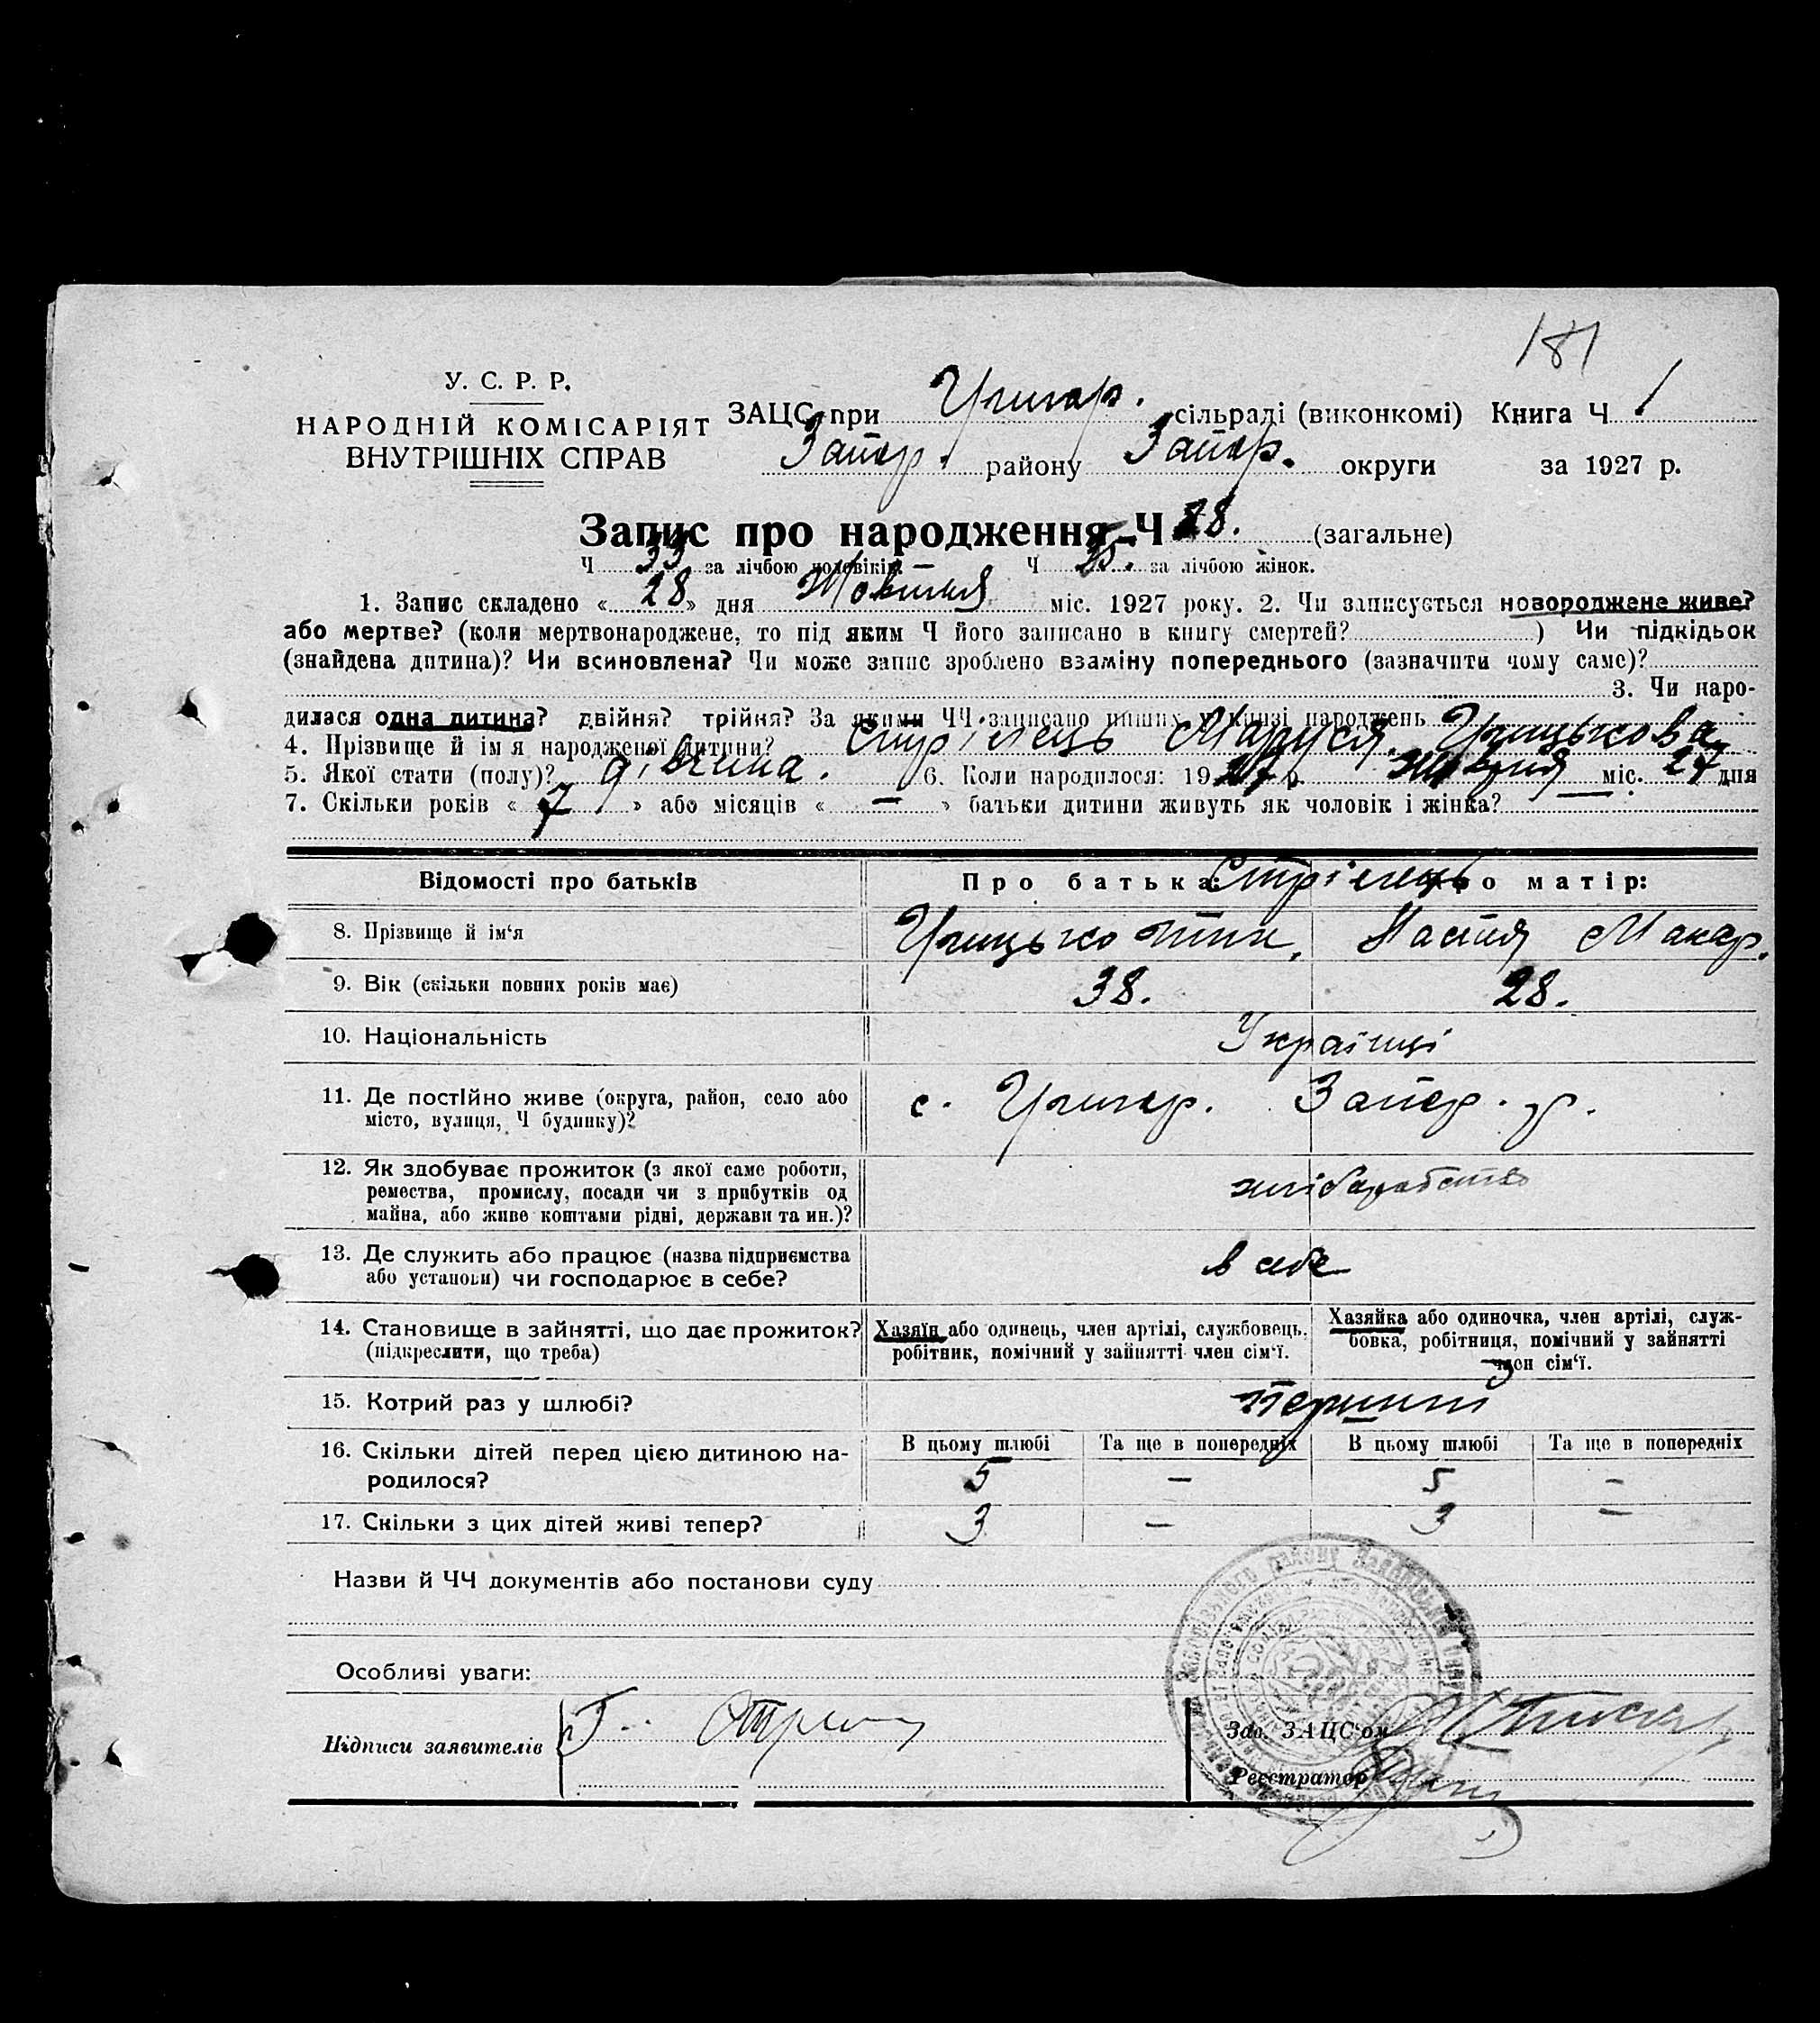 181
У. С. Р. Р.
НАРОДНІЙ КОМІСАРІЯТ
ВНУТРІШНІХ СПРАВ
ЗАЦС при Григор. сільраді (виконкомі) Книга Ч 1
Запор. району Запор. округи за 1927 р.
Запис про народження Ч 28. (загальне)
Ч 33 за лічбою чоловіків. Ч за лічбою жінок.
1. Запис складено « 28 » дня Жовтня міс. 1927 року. 2. Чи записується новороджене живе?
або мертве? (коли мертвонароджене, то під яким Ч його записано в книгу смертей? ) Чи підкідьок
(знайдена дитина)? Чи всиновлена? Чи може запис зроблено взаміну попереднього (зазначити чому саме)?
3. Чи наро-
дилася одна дитина? двійня? трійня? За якими ЧЧ записано инших у книзі народжень
4. Прізвище й ім я народженої дитини? Стрілець Маруся Грицькова
5. Якої стати (полу)? дівчина. 6. Коли народилося: 1927 р. жовтня міс. 27 дня
7. Скільки років « 7 » або місяців « — » батьки дитини живуть як чоловік і жінка?
Відомості про батьків
Про батька: Стрілець Про матір:
8. Прізвище й ім‘я Грицько Настя Макар.
9. Вік (скільки повних років має) 38. 28.
10. Національність Українці
11. Де постійно живе (округа, район, село або
місто, вулиця, Ч будинку)? с. Григор. Запор. р.
12. Як здобуває прожиток (з якої саме роботи,
ремества, промислу, посади чи з прибутків од
майна, або живе коштами рідні, держави та ин.)?
хліборобство
13. Де служить або працює (назва підприємства
або установи) чи господарює в себе?
в себе
14. Становище в зайнятті, що дає прожиток?
(підкреслити, що треба)
Хазяїн або одинець, член артілі, службовець,
робітник, помічний у зайнятті член сім‘ї.
Хазяйка або одиночка, член артілі, служ-
бовка, робітниця, помічний у зайнятті
член сім‘ї.
15. Котрий раз у шлюбі? Перший
16. Скільки дітей перед цією дитиною на-
родилося?
В цьому шлюбі Та ще в попередніх В цьому шлюбі Та ще в попередніх
5 — 5 —
17. Скільки з цих дітей живі тепер? 3 — 3 —
Назви й ЧЧ документів або постанови суду
Особливі уваги:
Підписи заявителів
Зав. ЗАЦС‘ом
Реєстратор